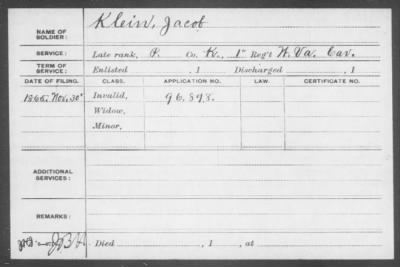 NAME OF SOLDIER: Klein, Jacob
SERVICE: Late rank, P. Co. K., 1" Reg't W. Va. Cav.
TERM OF SERVICE: Enlisted , 1 Discharged , 1
DATE OF FILING. CLASS. APPLICATION NO. LAW. CERTIFICATE NO.
1866. Nov. 30" Invalid, 96.898.
Widow,
Minor,
ADDITIONAL SERVICES:
REMARKS:
Died , 1 , at